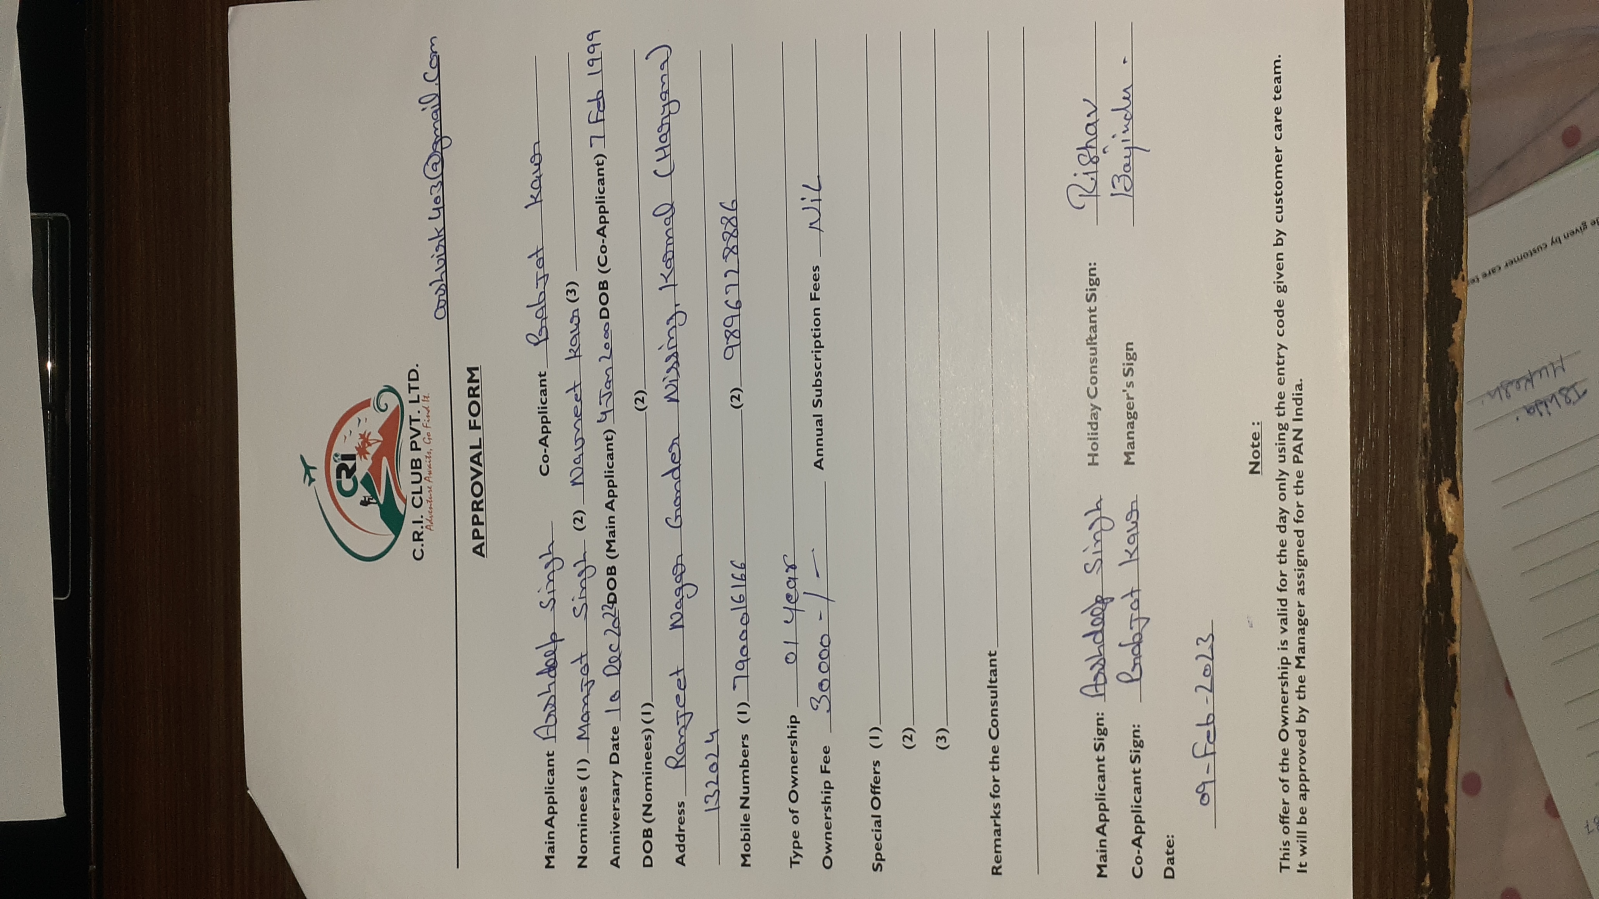 CRI
C.R.I. CLUB PVT. LTD.
Adventure Awaits, Go Find It.
arshvirk403@gmail.com
APPROVAL FORM
Main Applicant Arshdeep Singh Co-Applicant Prabjot kaur
Nominees (1) Manjot Singh (2) Navneet kaur (3)
Anniversary Date 10 Dec 2022 DOB (Main Applicant) 4 Jan 2000 DOB (Co-Applicant) 7 Feb 1999
DOB (Nominees) (1) (2)
Address Ranjeet Nagar Gonder Nissing, Karnal (Haryana)
132024
Mobile Numbers (1) 7900016166 (2) 9896728886
Type of Ownership 01 year
Ownership Fee 30000-/- Annual Subscription Fees NiL
Special Offers (1)
(2)
(3)
Remarks for the Consultant
Main Applicant Sign: Arshdeep Singh Holiday Consultant Sign: Rishav
Co-Applicant Sign: Prabjot kaur Manager's Sign
Date:
09-Feb-2023
Note :
This offer of the Ownership is valid for the day only using the entry code given by customer care team.
It will be approved by the Manager assigned for the PAN India.